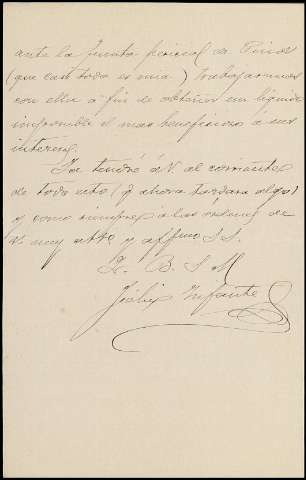 ante la Junta pericial de Pinos
(que casi todo es una) trabajaremos
con ella á fin de obtener un líquido
imponible el mas beneficioso á sus
intereses.
Ya tendré á V. al corriente
de todo esto (y ahora tardara algo)
y como siempre á las ordenes de
V. muy atto y affmo S.S.
Q. B. S. M
Felix Infante